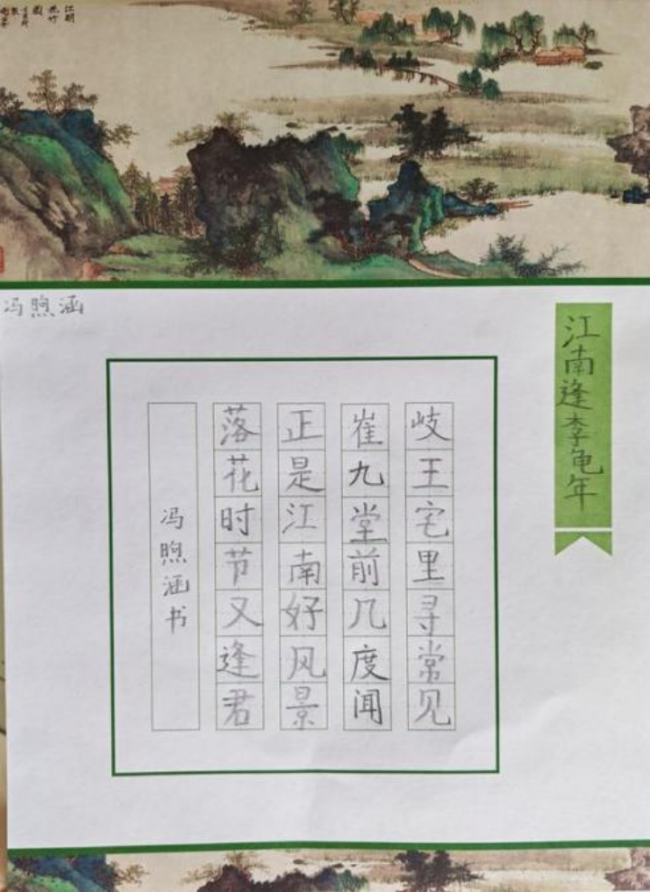 江南逢李龟年
岐王宅里寻常见
崔九堂前几度闻
正是江南好风景
落花时节又逢君
冯煦涵书
冯煦涵